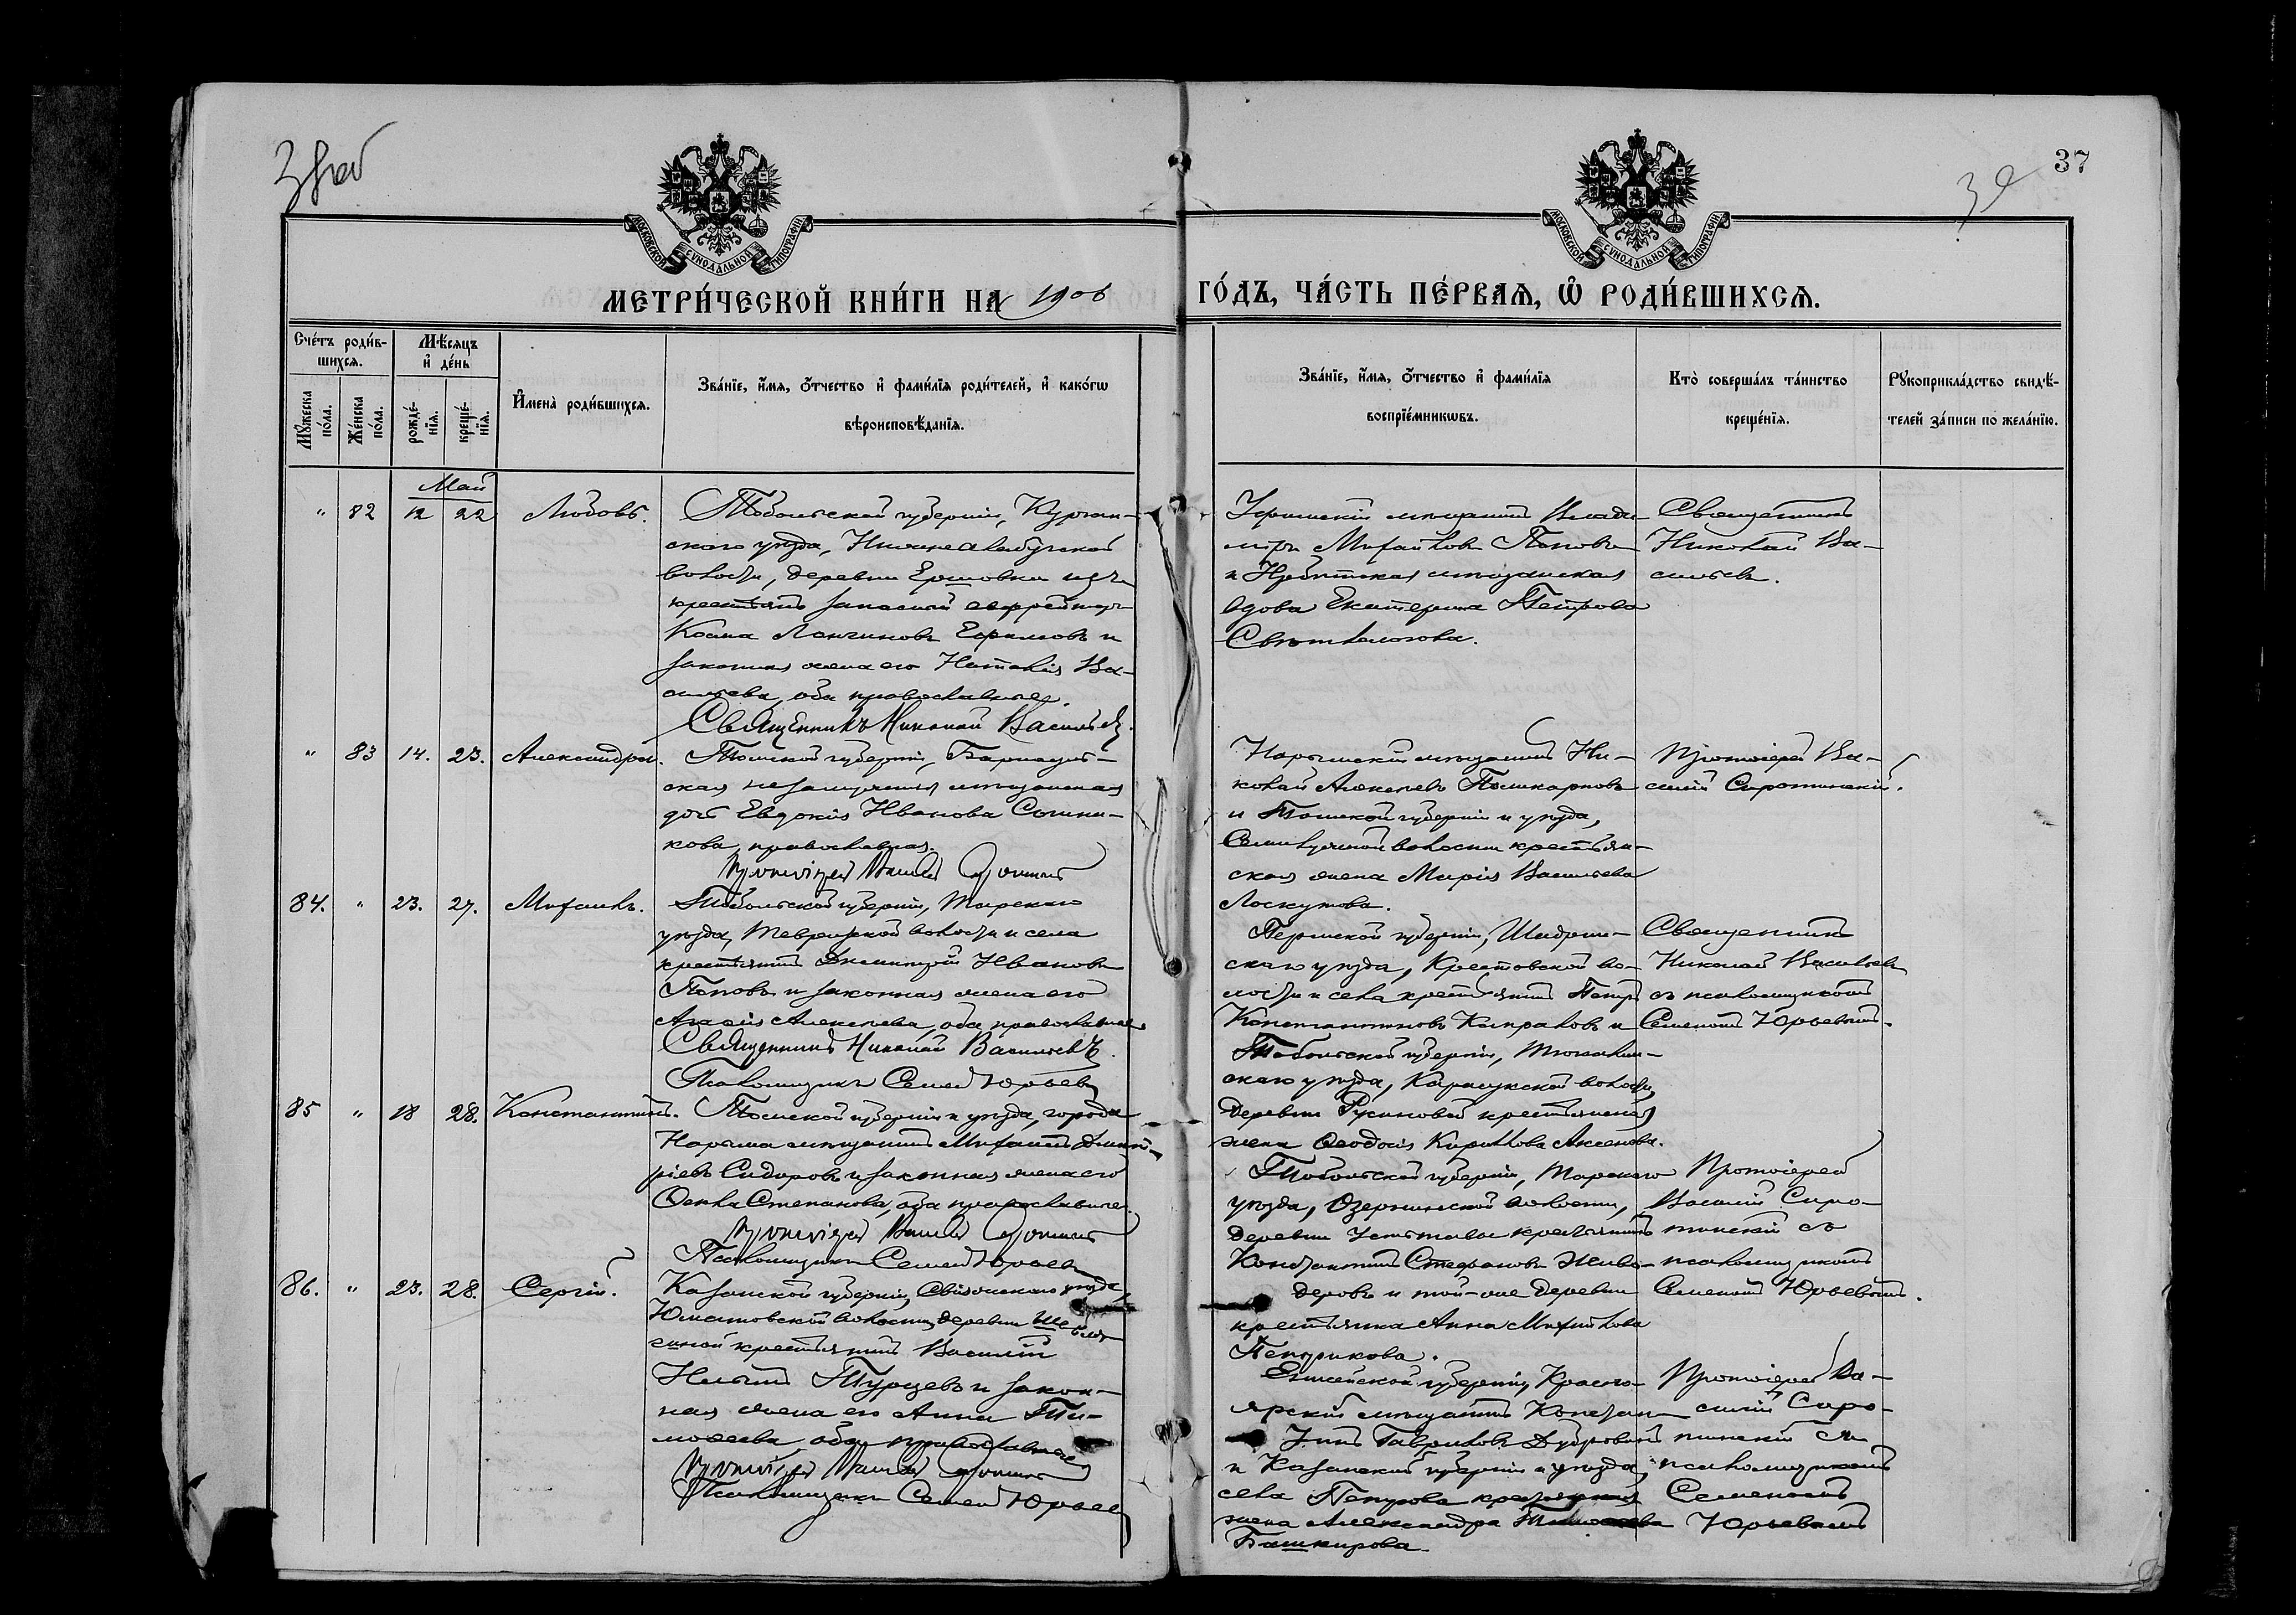 37
МОСКОВСКОЙ СѴНОДАЛЬНОЙ ТИПОГРАФІИ
МОСКОВСКОЙ СѴНОДАЛЬНОЙ ТИПОГРАФІИ
МЕТРИ́ЧЕСКОЙ КНИ́ГИ НА 1906 ГО́ДЪ, ЧА́СТЬ ПЕ́РВАЯ, Ѽ РОДИ́ВШИХСЯ.
Сче́тъ роди́в-
шихся.
Мѣсяцъ
и де́нь
Му́жеска
по́ла.
Же́нска
по́ла.
рожде́-
нія.
креще́-
нія.
Имена̀ роди́вшихся.
Зва́ніе, и́мя, о́тчество и фами́лія роди́телей, и како́гѡ
вѣроисповѣ́данія.
Зва́ніе, и́мя, о́тчество и фами́лія
воспріе́мникѡвъ.
Кто̀ соверша́лъ та́инство
креще́нія.
Рукоприкла́дство свидѣ́-
телей за́писи по жела́нію.
Май
" 82 12 22 Любовь.
Тобольской губерніи, Курган-
скаго уѣзда,
волости, деревни Ершовки изъ
крестьянъ запасный ефрейторъ
Косма Лонгиновъ Ефимовъ и
законная жена его Наталія Ва-
сильева, оба православные.
Священникъ Николай Васильевъ.
мѣщанинъ Влади-
міръ Михайловъ Поповъ
и мѣщанская
вдова Екатерина Петрова
Свѣтлолобова.
Священникъ
Николай Ва-
сильевъ.
" 83 14. 23. Александра.
Томской губерніи, Барнауль-
ская незамужняя мѣщанская
дочь Евдокія Иванова Сотни-
кова, православная.
Протоіерей Василій
Нарымскій мѣщанинъ Ни-
колай Алексѣевъ
и Томской губерніи и уѣзда,
Семилужной волости крестьян-
ская жена Марія Васильева
Лоскутова.
Протоіерей Ва-
силій Сиротинскій.
84. " 23. 27. Михаилъ.
Тобольской губерніи, Тарскаго
уѣзда, Тевризской волости и села
крестьянинъ Димитрій Ивановъ
Поповъ и законная жена его
Агаѳія Алексѣева, оба православные.
Священникъ Николай Васильевъ.
Псаломщикъ Семенъ Юрьевъ
Пермской губерніи, Шадрин-
скаго уѣзда, Крестовской во-
лости и села крестьянинъ Петръ
Константиновъ и
Тобольской губерніи, Тюкалин-
скаго уѣзда, Карасукской волости,
деревни Русиновой крестьянская
жена Ѳеодосія Кирилова Аксенова.
Священникъ
Николай Васильевъ
съ псаломщикомъ
Семеномъ Юрьевымъ.
85 " 18 28. Константинъ.
Томской губерніи и уѣзда, города
Нарыма мѣщанинъ Михаилъ Димит-
ріевъ Сидоровъ и законная жена его
Ѳекла Степанова, оба православные.
Протоіерей Василій
Псаломщикъ Семенъ Юрьевъ
Тобольской губерніи, Тарскаго
уѣзда, волости,
деревни крестьянинъ
Константинъ Стефановъ Живо-
деровъ и той-же деревни
крестьянка Анна Михайлова
Протоіерей
Василій Сиро-
тинскій съ
псаломщикомъ
Семеномъ Юрьевымъ.
86. " 23. 28. Сергій.
Казанской губерніи, Свіяжскаго уѣзда,
Юматовской волости, деревни
крестьянинъ Василій
Ильинъ Турцевъ и закон-
ная жена его Анна Ти-
моѳеева, оба православные
Протоіерей Василій
Псаломщикъ Семенъ Юрьевъ
Енисейской губерніи, Красно-
ярскій мѣщанинъ Констан-
тинъ Гавриловъ
и Казанской губерніи и уѣзда,
села крестьянская
жена Александра
Башкирова.
Протоіерей Ва-
силій Сиро-
тинскій съ
псаломщикомъ
Семеномъ
Юрьевымъ